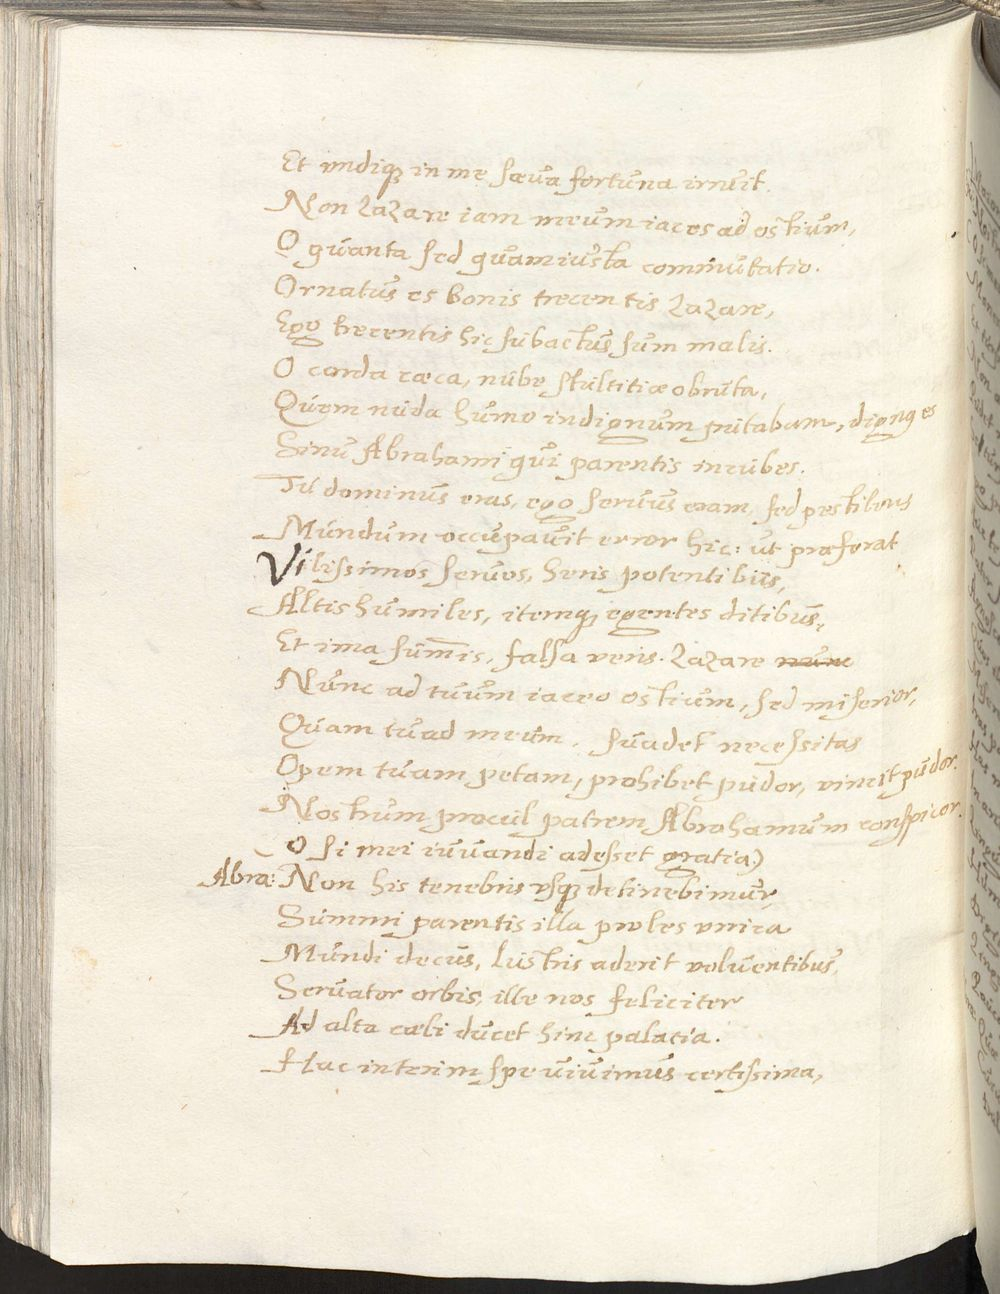 Et vndiq; in me sæua fortuna irruit.
Non Lazare iam meum iaces ad ostium,
O quanta sed quam iusta commutatio.
Ornatus es bonis trecentis Lazare,
Ego trecentis hic subactus sum malis.
O corda cæca, nube stultitiæ obruta,
Quem nuda humo indignum putabam, dignus es
Sinu Abrahami qui parentis incubes.
Tu dominus eras, ego seruus eram, sed pestilens
Mundum occupauit error hic: ut præferat
Vilissimos seruos, heris potentibus,
Altis humiles, itemq; egentes ditibus,
Et ima sum̄is, falsa veris. Lazare nunc
Nunc ad tuum iaceo ostium, sed miserior,
Quam tu ad meum. Suadet necessitas
Opem tuam petam, prohibet pudor, vincit pudor.
Nostrum procul patrem Abrahamum conspicor.
O si mei iuuandi adesset gratia)
Abra: Non his tenebris vsq; detinebimur,
Summi parentis illa proles vnica
Mundi decus, lustris aderit voluentibus,
Seruator orbis, ille nos feliciter
Ad alta cæli ducet hinc palatia.
Hac interim spe uiuimus certissima,